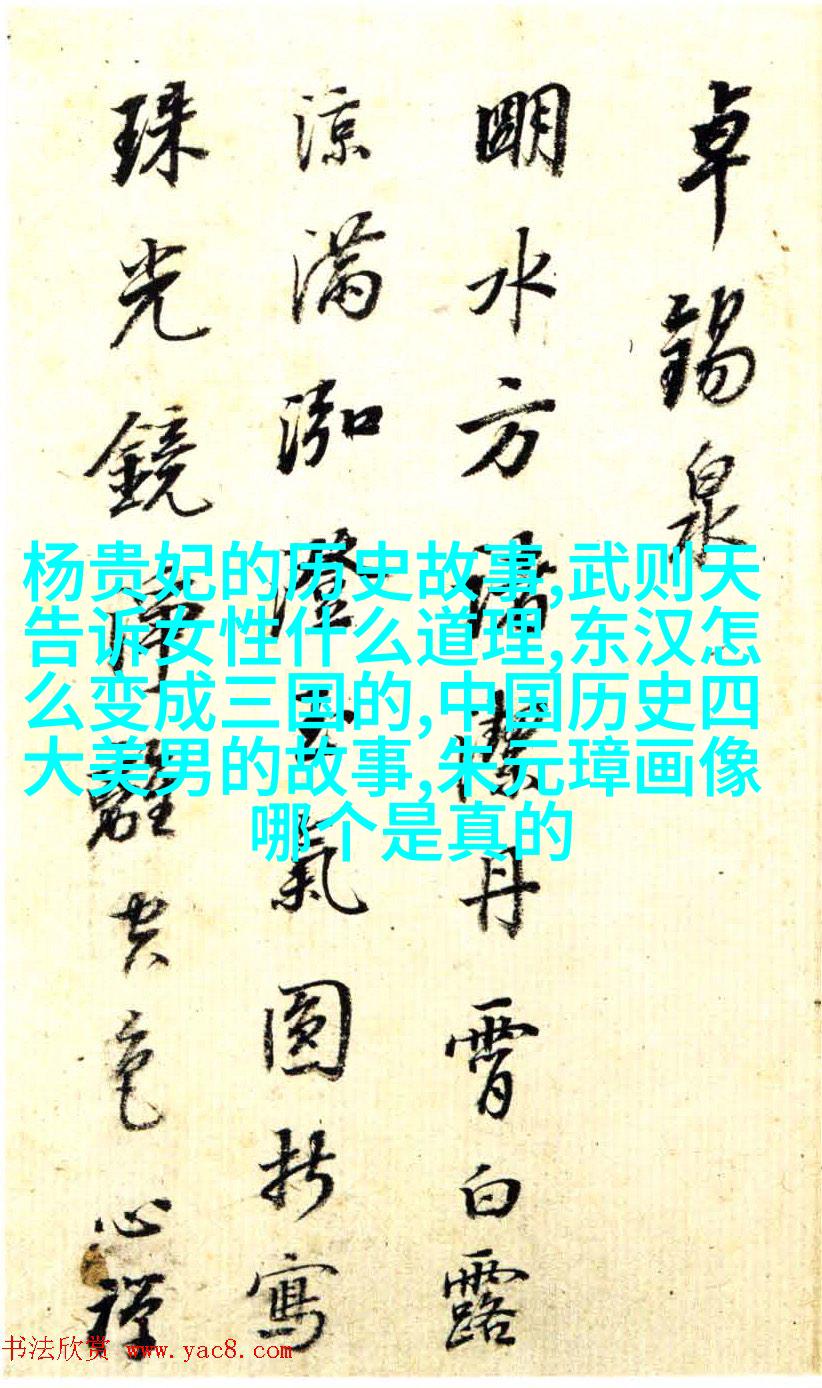 卓錫泉
朙水方諸潔丹霄白露
涼滿泓澄氣圓折寫
珠光鏡離色心禪
杨贵妃的历史故事,武则天
告诉女性什么道理,东汉怎
么变成三国的,中国历史四
大美男的故事,朱元璋画像
哪个是真的
书法欣赏 www.yac8.com